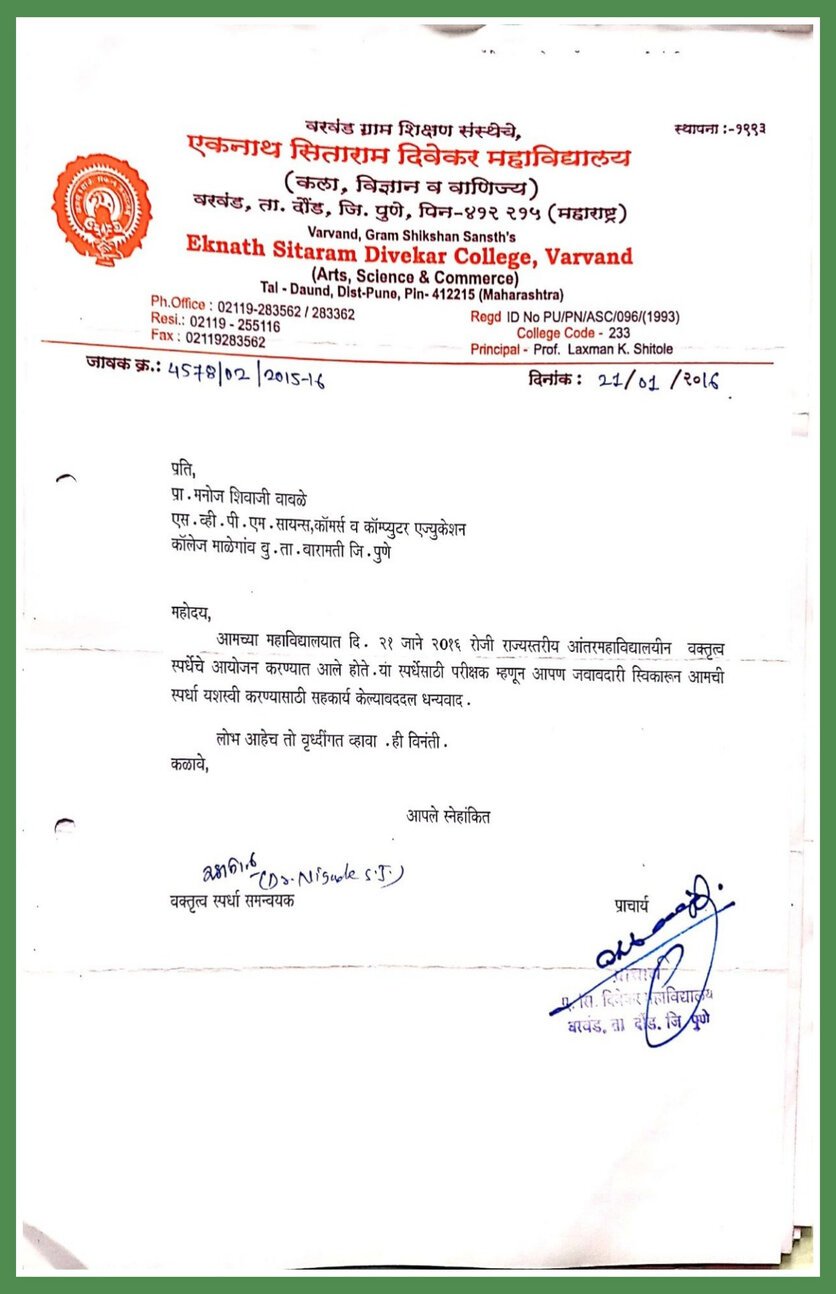 वरवंड ग्राम शिक्षण संस्थेचे,
स्थापना :-१९९३
एकनाथ सिताराम दिवेकर महाविद्यालय
(कला, विज्ञान व वाणिज्य)
वरवंड, ता. दौंड, जि. पुणे, पिन-४१२ २१५ (महाराष्ट्र)
Varvand, Gram Shikshan Sansth's
Eknath Sitaram Divekar College, Varvand
(Arts, Science & Commerce)
Tal - Daund, Dist-Pune, Pin- 412215 (Maharashtra)
Ph.Office : 02119-283562 / 283362
Resi.: 02119 - 255116
Fax : 02119283562
Regd ID No PU/PN/ASC/096/(1993)
College Code - 233
Principal - Prof. Laxman K. Shitole
जावक क्र.: 4578/02/2015-16
दिनांक : 21/01/२०१६
प्रति,
प्रा.मनोज शिवाजी वावळे
एस.व्ही.पी.एम.सायन्स,कॉमर्स व कॉम्प्युटर एज्युकेशन
कॉलेज माळेगांव बु.ता.बारामती जि.पुणे
महोदय,
आमच्या महाविद्यालयात दि. २१ जाने २०१६ रोजी राज्यस्तरीय आंतरमहाविद्यालयीन वक्तृत्व
स्पर्धेचे आयोजन करण्यात आले होते.यां स्पर्धेसाठी परीक्षक म्हणून आपण जवावदारी स्विकारून आमची
स्पर्धा यशस्वी करण्यासाठी सहकार्य केल्यावददल धन्यवाद.
लोभ आहेच तो वृध्दींगत व्हावा .ही विनंती.
कळावे,
आपले स्नेहांकित
(Dr. Nigade S.J.)
वक्तृत्व स्पर्धा समन्वयक
प्राचार्य
प्राचार्य
ए. सि. दिवेकर महाविद्यालय
वरवंड, ता दौंड. जि पुणे